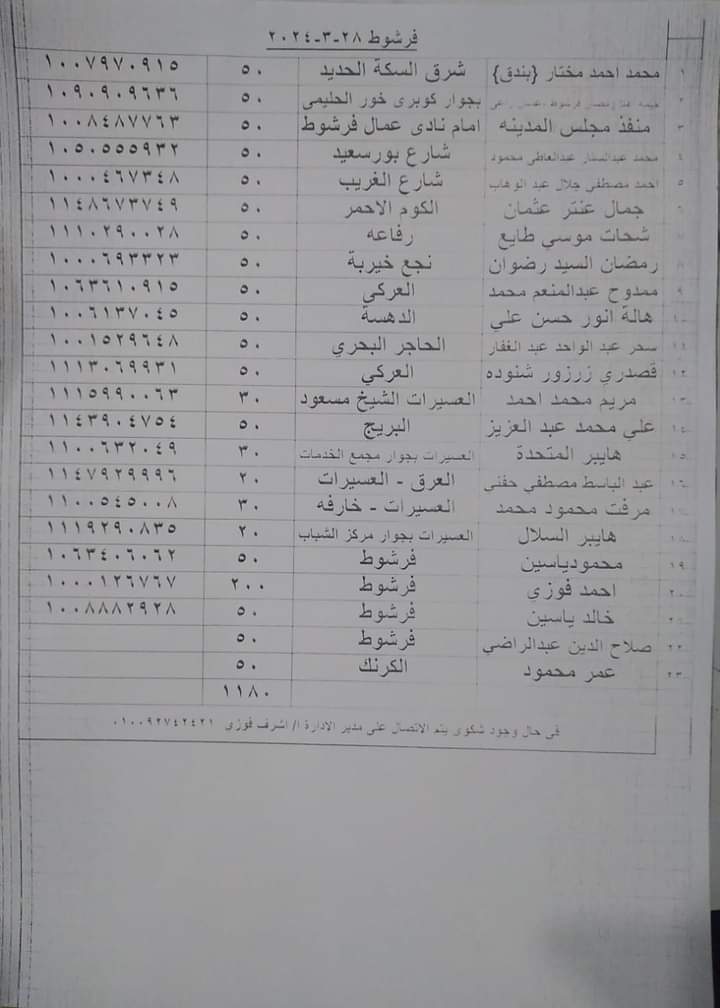 فرشوط ٢٨-٣-٢٠٢٤
١ محمد احمد مختار {بندق} شرق السكة الحديد ٥٠ ١٠٠٧٩٧٠٩١٥
٢ بجوار كوبرى خور الحليمى ٥٠ ١٠٩٠٩٠٩٦٣٦
٣ منفذ مجلس المدينه امام نادى عمال فرشوط ٥٠ ١٠٠٨٤٨٧٧٦٣
٤ محمد عبدالستار عبدالعاطى محمود شارع بورسعيد ٥٠ ١٠٥٠٥٥٥٩٣٢
٥ احمد مصطفى جلال عبد الوهاب شارع الغريب ٥٠ ١٠٠٠٤٦٧٣٤٨
٦ جمال عنتر عثمان الكوم الاحمر ٥٠ ١١٤٨٦٧٣٧٤٩
٧ شحات موسي طايع رفاعه ٥٠ ١١١٠٢٩٠٠٢٨
٨ رمضان السيد رضوان نجع خيرية ٥٠ ١٠٠٠٦٩٣٣٢٣
٩ ممدوح عبدالمنعم محمد العركي ٥٠ ١٠٦٣٦١٠٩١٥
١٠ هالة انور حسن علي الدهسة ٥٠ ١٠٠٦١٣٧٠٤٥
١١ سحر عبد الواحد عبد الغفار الحاجر البحري ٥٠ ١٠٠١٥٢٩٦٤٨
١٢ قصدري زرزور شنوده العركي ٥٠ ١١١٣٠٦٩٩٣١
١٣ مريم محمد احمد العسيرات الشيخ مسعود ٣٠ ١١١٥٩٩٠٠٦٣
١٤ علي محمد عبد العزيز البريج ٥٠ ١١٤٣٩٠٤٧٥٤
١٥ هايبر المتحدة العسيرات بجوار مجمع الخدمات ٣٠ ١١٠٠٦٣٢٠٤٩
١٦ عبد الباسط مصطفي حفني العرق - العسيرات ٢٠ ١١٤٧٩٢٩٩٩٦
١٧ مرفت محمود محمد العسيرات - خارفه ٣٠ ١١٠٠٥٤٥٠٠٨
١٨ هايبر السلال العسيرات بجوار مركز الشباب ٢٠ ١١١٩٢٩٠٨٣٥
١٩ محمودياسين فرشوط ٥٠ ١٠٦٣٤٠٦٠٦٢
٢٠ احمد فوزي فرشوط ٢٠٠ ١٠٠٠١٢٦٧٦٧
٢١ خالد ياسين فرشوط ٥٠ ١٠٠٨٨٨٢٩٢٨
٢٢ صلاح الدين عبدالراضي فرشوط ٥٠
٢٣ عمر محمود الكرنك ٥٠
١١٨٠
فى حال وجود شكوى يتم الاتصال على مدير الادارة ا/ اشرف فوزي ٠١٠٠٩٢٧٤٢٤٢١